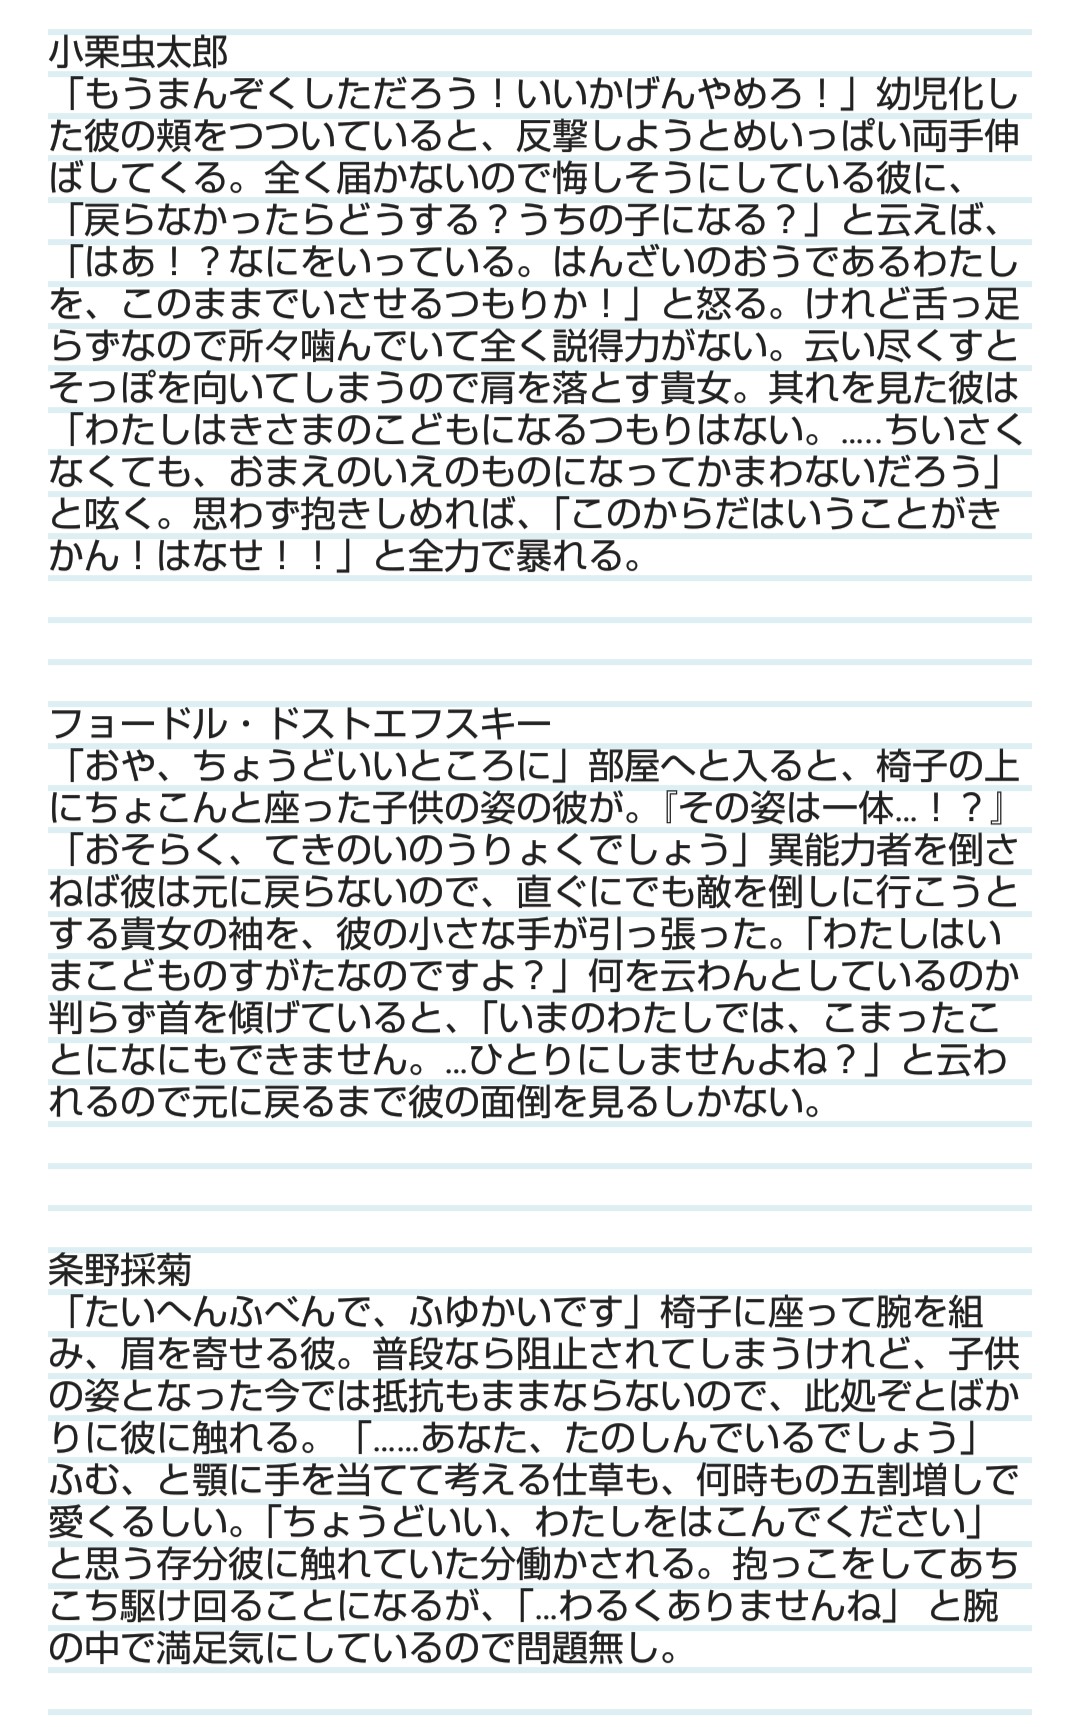 小栗虫太郎
「もうまんぞくしただろう！いいかげんやめろ！」幼児化し
た彼の頬をつついていると、反撃しようとめいっぱい両手伸
ばしてくる。全く届かないので悔しそうにしている彼に、
「戻らなかったらどうする？うちの子になる？」と云えば、
「はあ！？なにをいっている。はんざいのおうであるわたし
を、このままでいさせるつもりか！」と怒る。けれど舌っ足
らずなので所々噛んでいて全く説得力がない。云い尽くすと
そっぽを向いてしまうので肩を落とす貴女。其れを見た彼は
「わたしはきさまのこどもになるつもりはない。…..ちいさく
なくても、おまえのいえのものになってかまわないだろう」
と呟く。思わず抱きしめれば、「このからだはいうことがき
かん！はなせ！！」と全力で暴れる。
フョードル・ドストエフスキー
「おや、ちょうどいいところに」部屋へと入ると、椅子の上
にちょこんと座った子供の姿の彼が。『その姿は一体…！？』
「おそらく、てきのいのうりょくでしょう」異能力者を倒さ
ねば彼は元に戻らないので、直ぐにでも敵を倒しに行こうと
する貴女の袖を、彼の小さな手が引っ張った。「わたしはい
まこどものすがたなのですよ？」何を云わんとしているのか
判らず首を傾げていると、「いまのわたしでは、こまったこ
とになにもできません。…ひとりにしませんよね？」と云わ
れるので元に戻るまで彼の面倒を見るしかない。
条野採菊
「たいへんふべんで、ふゆかいです」椅子に座って腕を組
み、眉を寄せる彼。普段なら阻止されてしまうけれど、子供
の姿となった今では抵抗もままならないので、此処ぞとばか
りに彼に触れる。「……あなた、たのしんでいるでしょう」
ふむ、と顎に手を当てて考える仕草も、何時もの五割増しで
愛くるしい。「ちょうどいい、わたしをはこんでください」
と思う存分彼に触れていた分働かされる。抱っこをしてあち
こち駆け回ることになるが、「…わるくありませんね」 と腕
の中で満足気にしているので問題無し。